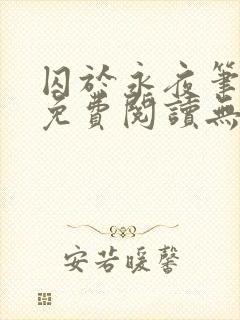 囚於永夜筆
免費閱讀無
安若暖馨